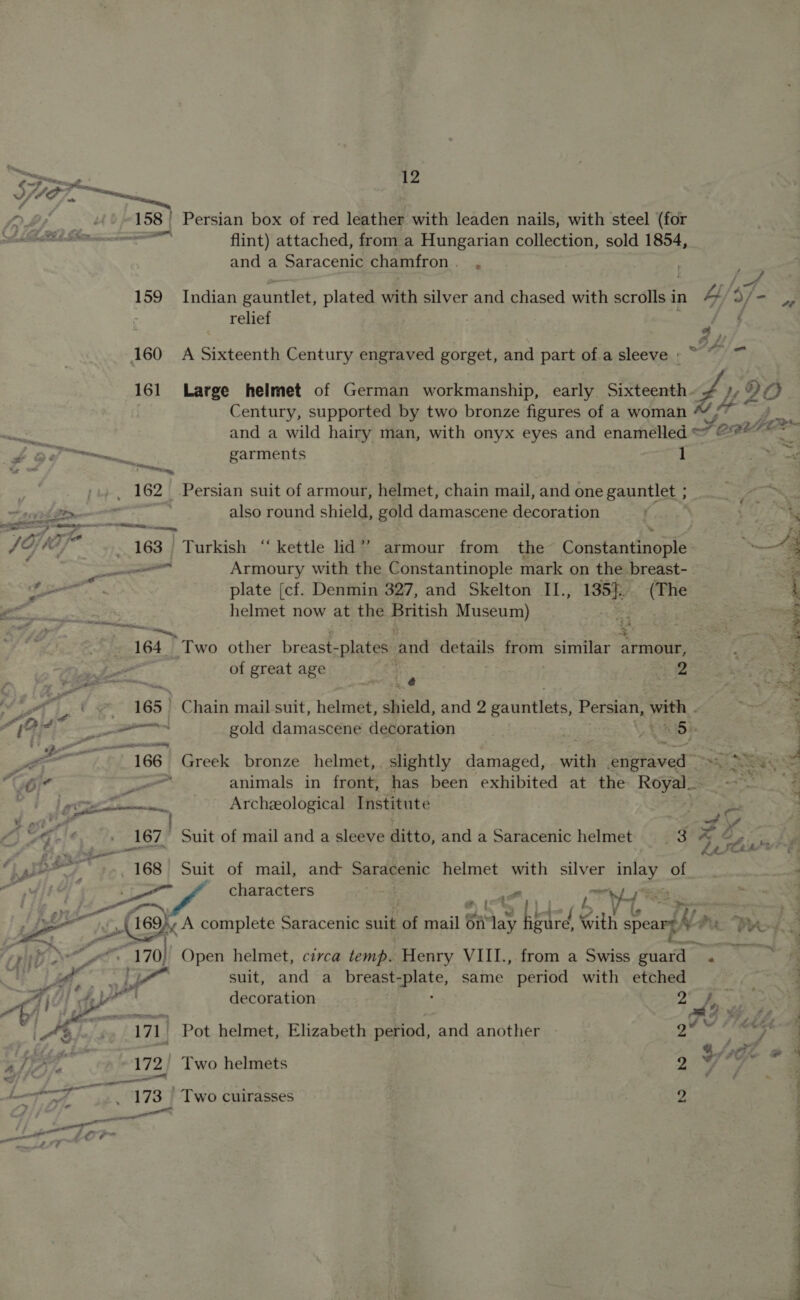 12
158 Persian box of red leather with leaden nails, with steel (for
flint) attached, from a Hungarian collection, sold 1854,
and a Saracenic chamfron .
159 Indian gauntlet, plated with silver and chased with scrolls in
relief
160 A Sixteenth Century engraved gorget, and part of a sleeve
161 Large helmet of German workmanship, early Sixteenth
Century, supported by two bronze figures of a woman
and a wild hairy man, with onyx eyes and enamelled
garments 1
162 Persian suit of armour, helmet, chain mail, and one gauntlet ;
also round shield, gold damascene decoration
163 Turkish “kettle lid” armour from the Constantinople
Armoury with the Constantinople mark on the breast-
plate [cf. Denmin 327, and Skelton II., 135]. (The
helmet now at the British Museum)
164 Two other breast-plates and details from similar armour,
of great age 2
165 Chain mail suit, helmet, shield, and 2 gauntlets, Persian, with
gold damascene decoration 5
166 Greek bronze helmet, slightly damaged, with engraved
animals in front, has been exhibited at the Royal
Archæological Institute
167 Suit of mail and a sleeve ditto, and a Saracenic helmet 3
168 Suit of mail, and Saracenic helmet with silver inlay of
characters
169 A complete Saracenic suit of mail on lay figure, with spear
170 Open helmet, circa temp. Henry VIII., from a Swiss guard
suit, and a breast-plate, same period with etched
decoration 2
171 Pot helmet, Elizabeth period, and another 2
172 Two helmets 2
173 Two cuirasses 2